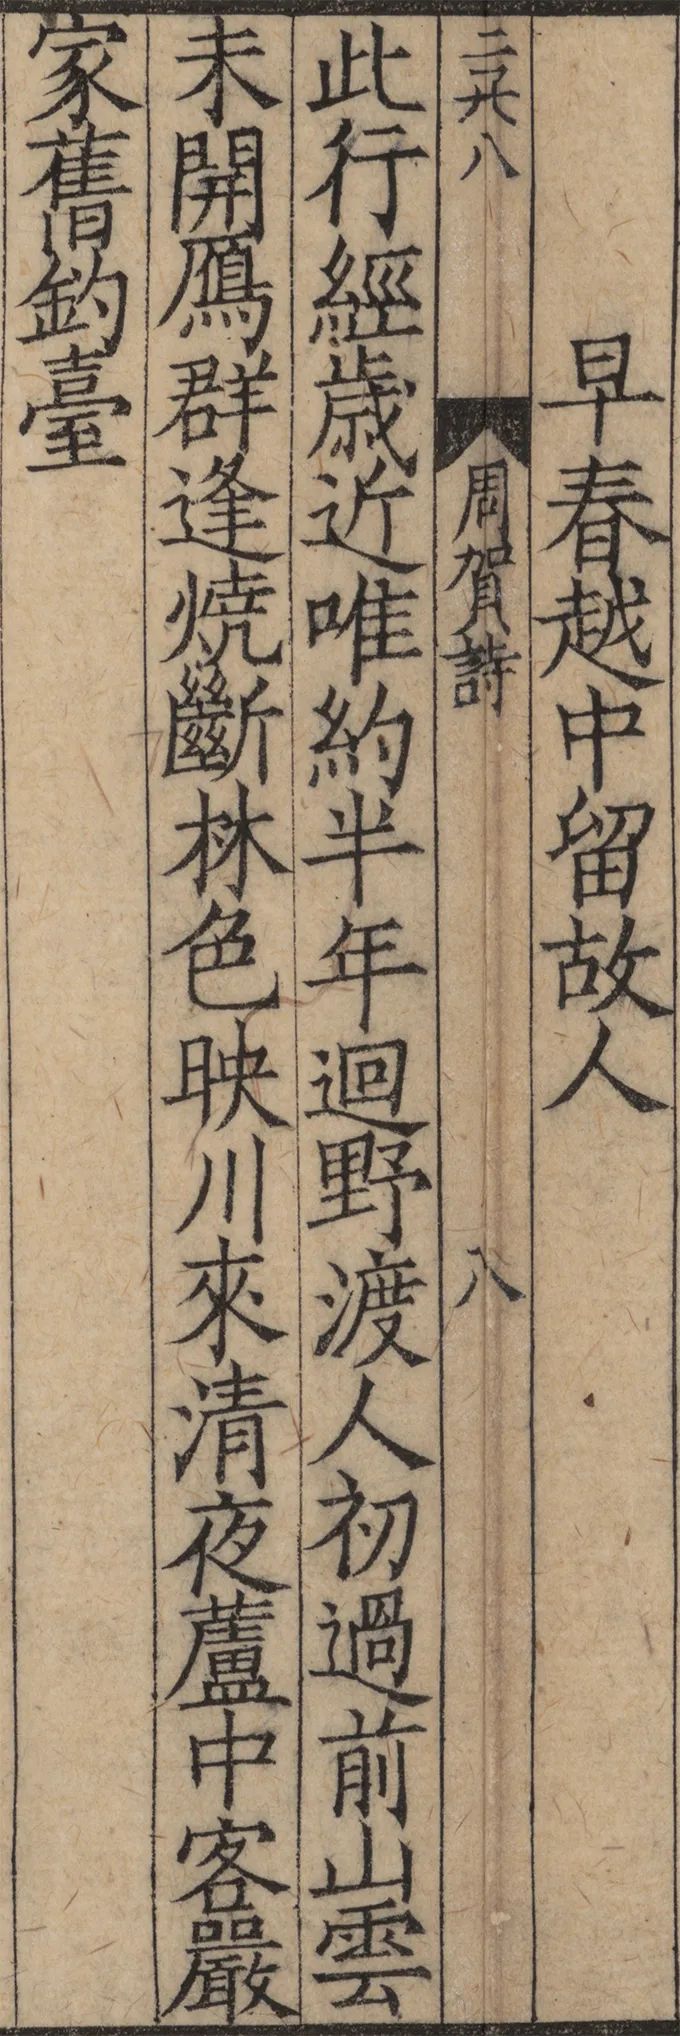 早春越中留故人
二百六八
周賀詩
八
此行經歲近唯約半年迴野渡人初過前山雲
未開鴈群逢燒斷林色映川來清夜蘆中客嚴
家舊釣臺